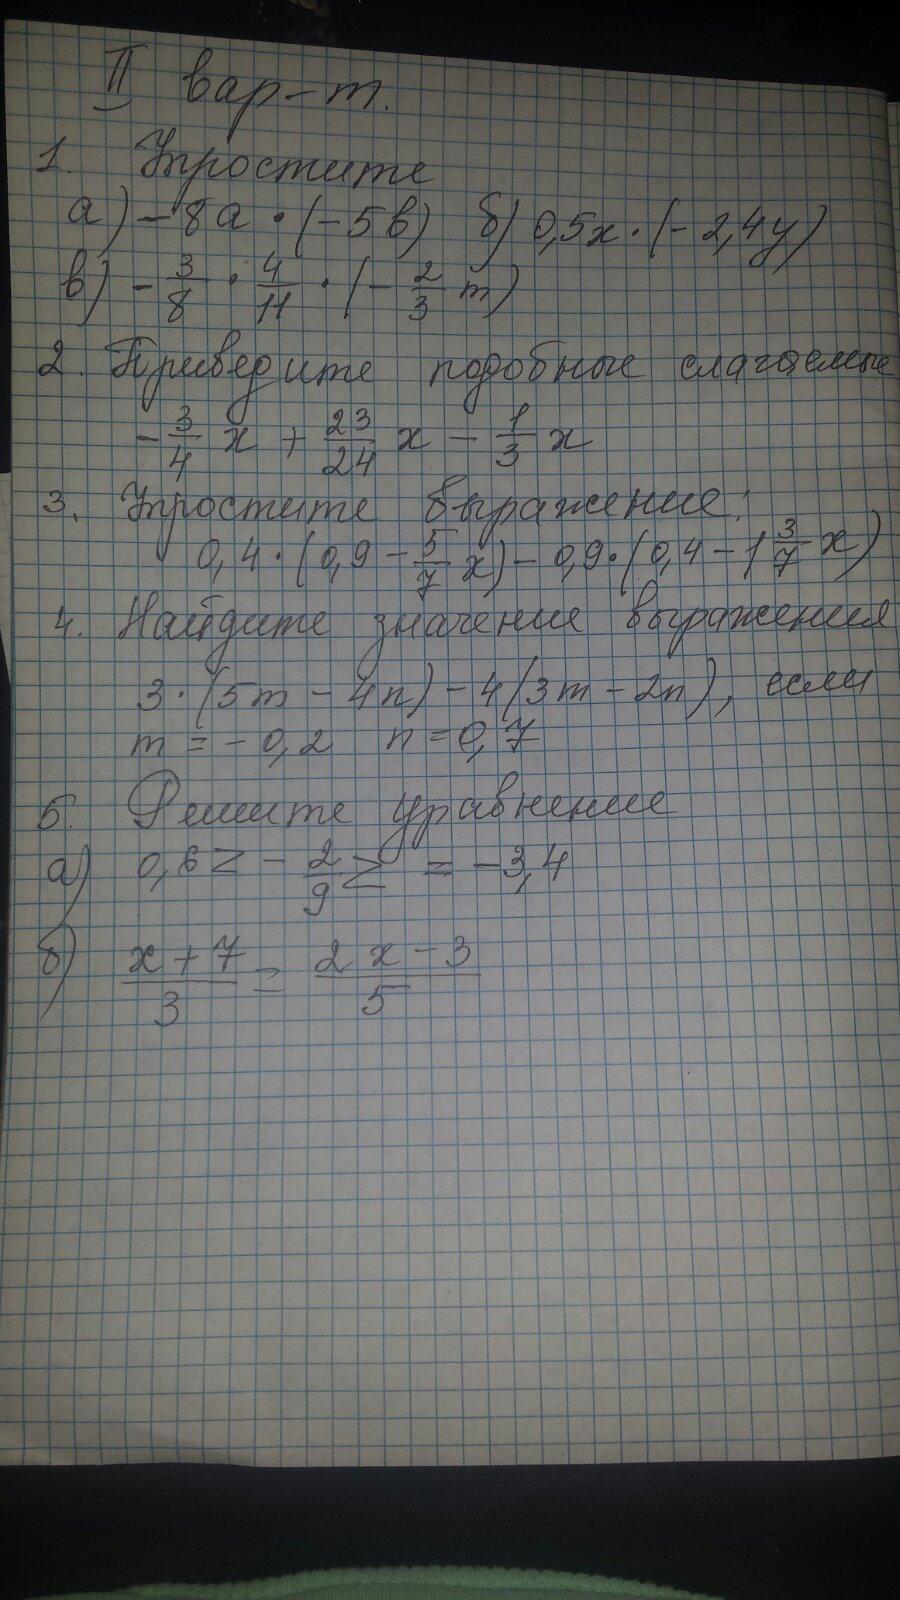 II вар-т.
1. Упростите
а) -8а · (-5в) б) 0,5х · (-2,4у)
в) -3/8 · 4/11 · (-2/3 m)
2. Приведите подобные слагаемые
-3/4 х + 23/24 х - 1/3 х
3. Упростите выражение:
0,4 · (0,9 - 5/7 х) - 0,9 · (0,4 - 1 3/7 х)
4. Найдите значение выражения
3 · (5m - 4n) - 4(3m - 2n), если
m = -0,2 n = 0,7
5. Решите уравнение
а) 0,6z - 2/9 z = -3,4
б) х + 7/3 = 2х - 3/5